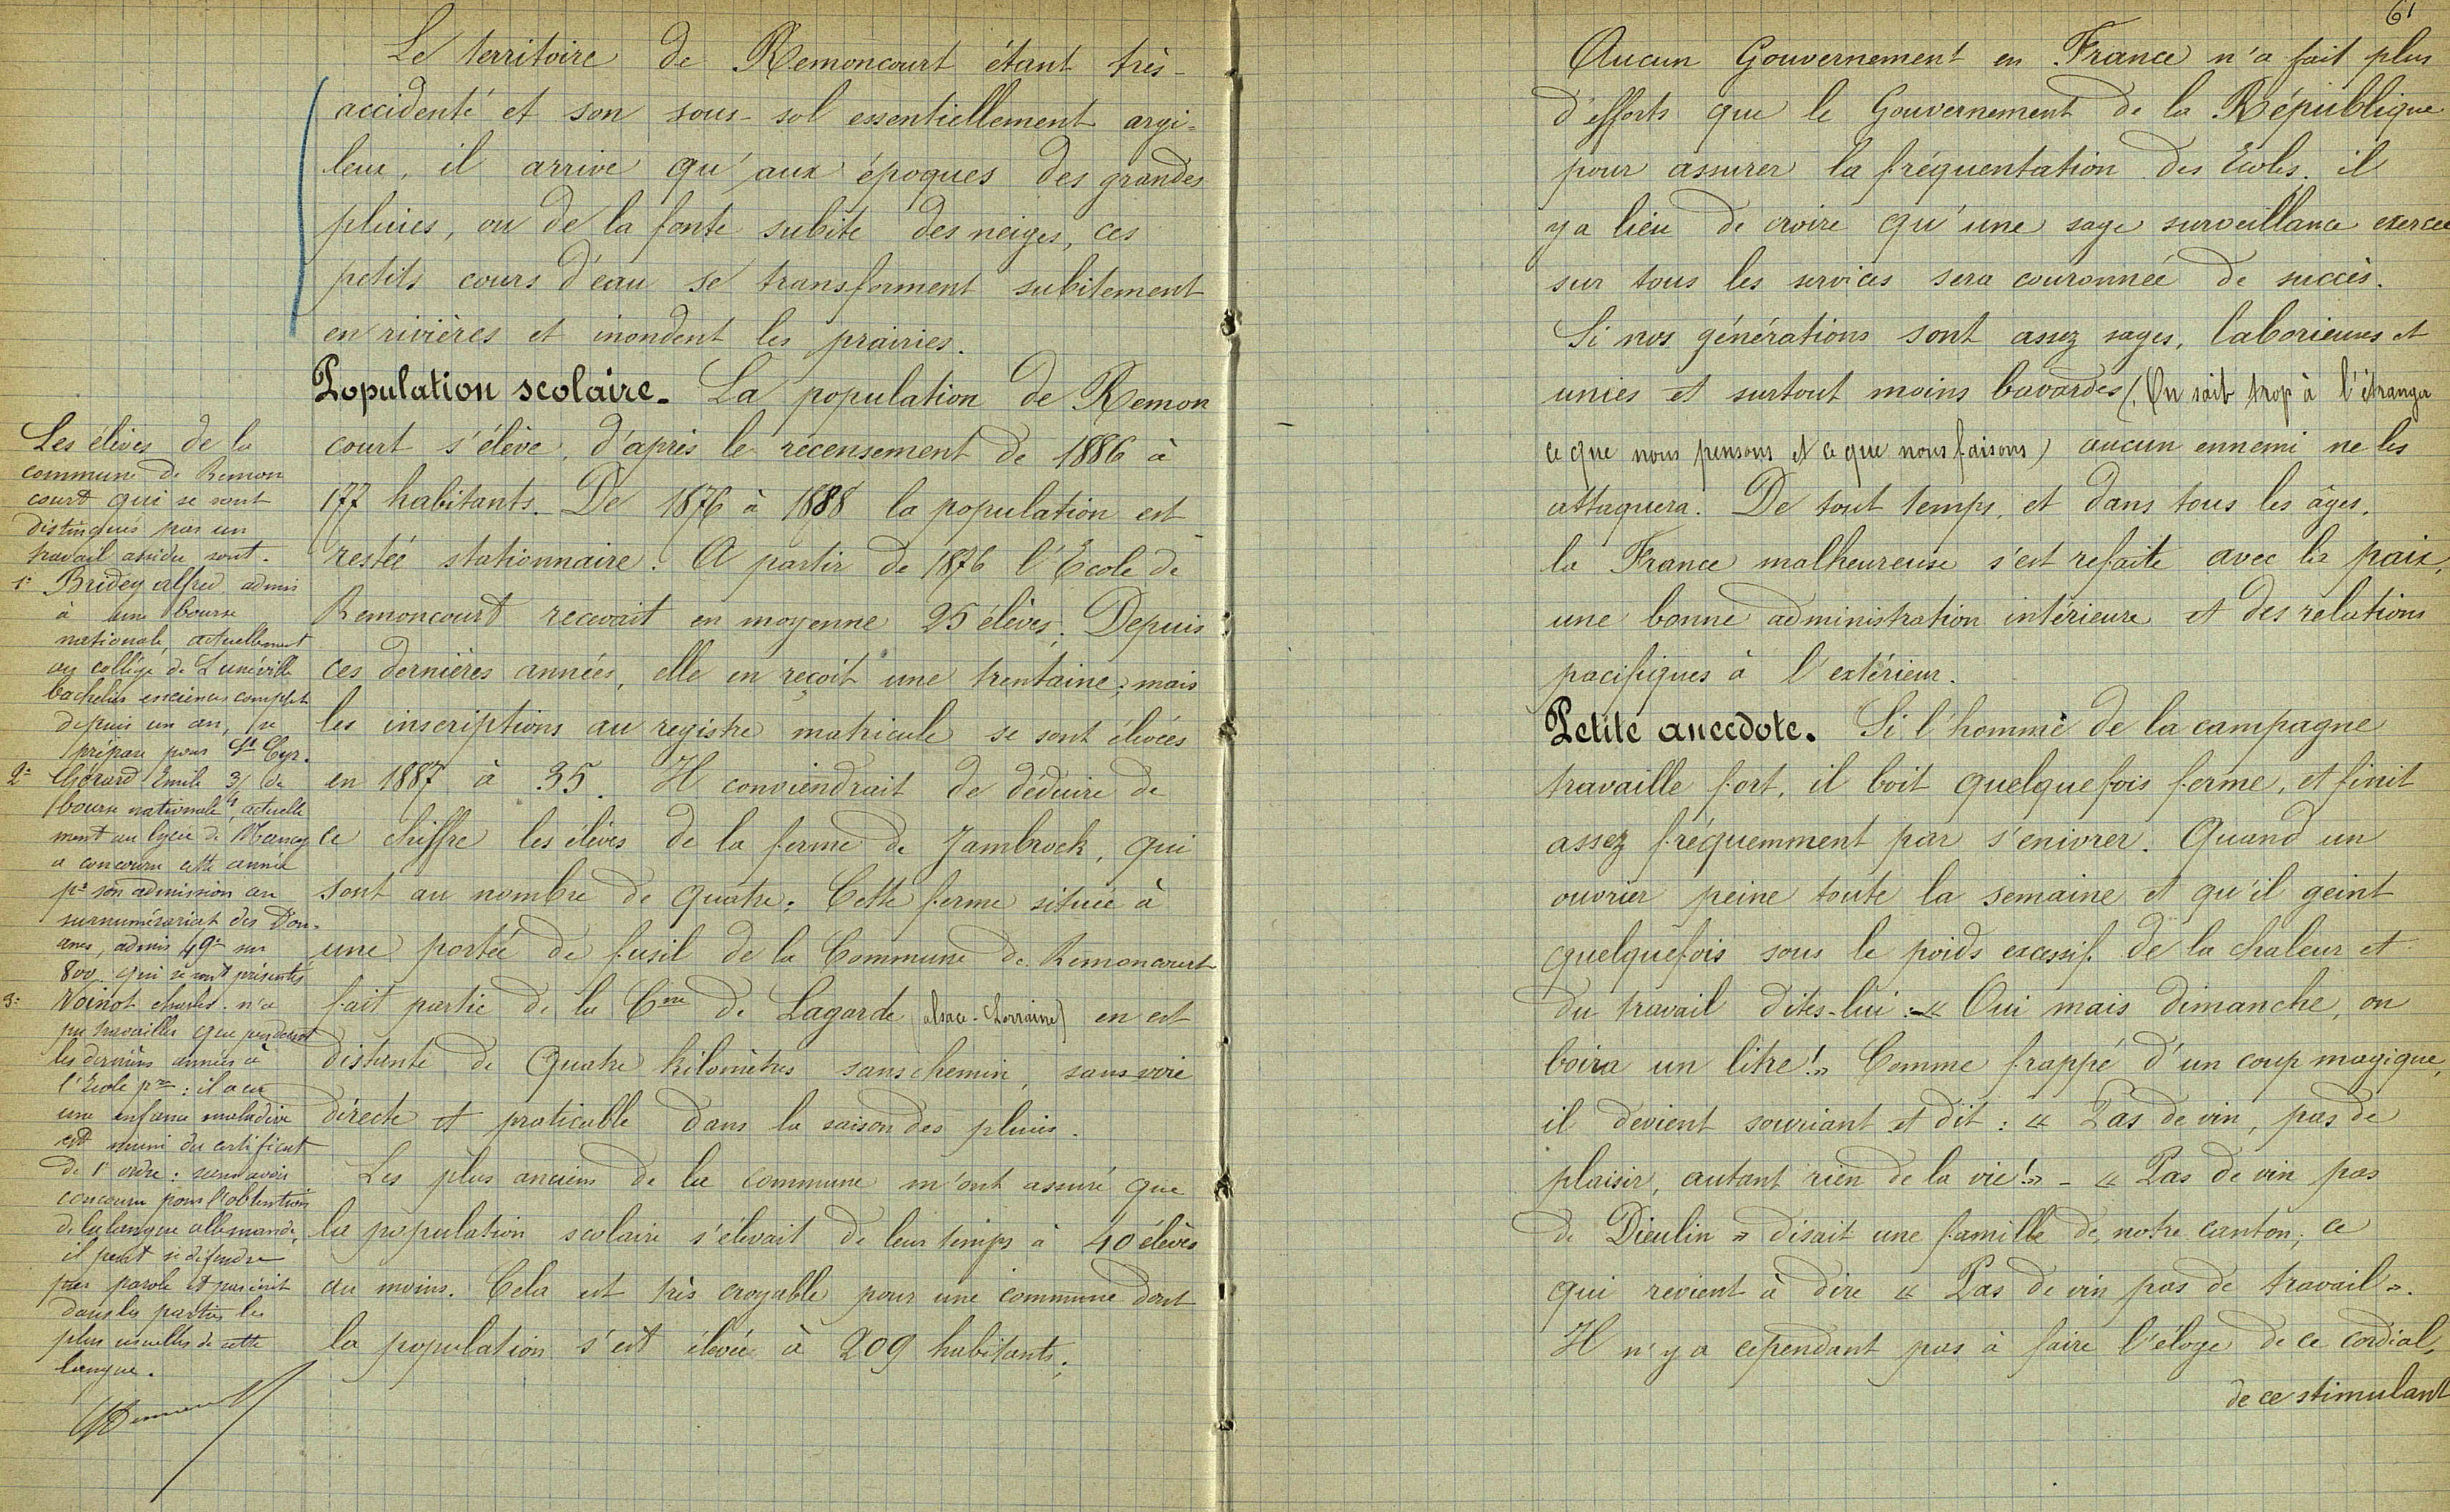 Le territoire de Remoncourt étant très-
accidenté et son sous-sol essentiellement argi-
leux, il arrive qu'aux époques des grandes
pluies, ou de la fonte subite des neiges, ces
petits cours d'eau se transforment subitement
en rivières et inondent les prairies.
Population scolaire. La population de Remon
court s'élève, d'après le recensement de 1886 à
177 habitants. De 1876 à 1888 la population est
restée stationnaire. A partir de 1876 l'Ecole de
Remoncourt recevait en moyenne 25 élèves. Depuis
ces dernières années, elle en reçoit une trentaine; mais
les inscriptions au registre matricule se sont élevées
en 1887 à 35. Il conviendrait de déduire de
ce chiffre les élèves de la ferme de Jambrock, qui
sont au nombre de quatre. Cette ferme située à
une portée de fusil de la Commune de Remoncourt
fait partie de la Cne de Lagarde (alsace-Lorraine) en est
distante de quatre kilomètres sans chemin, sans voie
directe et praticable dans la saison des pluies.
Les plus anciens de la commune m'ont assuré que
la population scolaire s'élevait de leur temps à 40 élèves
au moins. Cela est très croyable pour une commune dont
la population s'est élevée à 209 habitants.
Les élèves de la
commune de Remon
court qui se sont
distingués par un
travail assidu sont.
1° Bridey alfred admis
à une bourse
nationale, actuellement
au collège de Lunéville
bachelier essciences complet
depuis un an, se
prépare pour St Cyr.
2° Gérard Emile 3/4 de
bourse nationale, actuelle
ment au lycée de Nancy
a concouru cette année
pr son admission au
surnumérariat des Dou-
anes, admis 49e sur
800 qui se sont présentés
3° Voinot charles n'a
pu travailler que pendant
les dernières années à
l'Ecole pre : il a eu
une enfance maladive
est muni du certificat
de 1er ordre : sans avoir
concouru pour l'obtention
de la langue allemande,
il peut se défendre
par parole et par écrit
dans les parties les
plus usuelles de cette
langue.
61
Aucun Gouvernement en France n'a fait plus
d'efforts que le Gouvernement de la République
pour assurer la fréquentation des Ecoles. il
y a lieu de croire qu'une sage surveillance exercée
sur tous les services sera couronnée de succès.
Si nos générations sont assez sages, laborieuses et
unies et surtout moins bavardes (On sait trop à l'étranger
ce que nous pensons et ce que nous faisons) aucun ennemi ne les
attaquera. De tout temps, et dans tous les âges,
la France malheureuse s'est refaite avec la paix,
une bonne administration intérieure et des relations
pacifiques à l'extérieur.
Petite anecdote. Si l'homme de la campagne
travaille fort, il boit quelquefois ferme, et finit
assez fréquemment par s'enivrer. Quand un
ouvrier peine toute la semaine et qu'il geint
quelquefois sous le poids excessif de la chaleur et
du travail dites-lui :« Oui mais dimanche, on
boira un litre!» Comme frappé d'un coup magique,
il devient souriant et dit : « Pas de vin, pas de
plaisir, autant rien de la vie!» - « Pas de vin pas
de Dieulin » disait une famille de notre canton, ce
qui revient à dire « Pas de vin pas de travail ».
Il n'y a cependant pas à faire l'éloge de ce cordial,
de ce stimulant